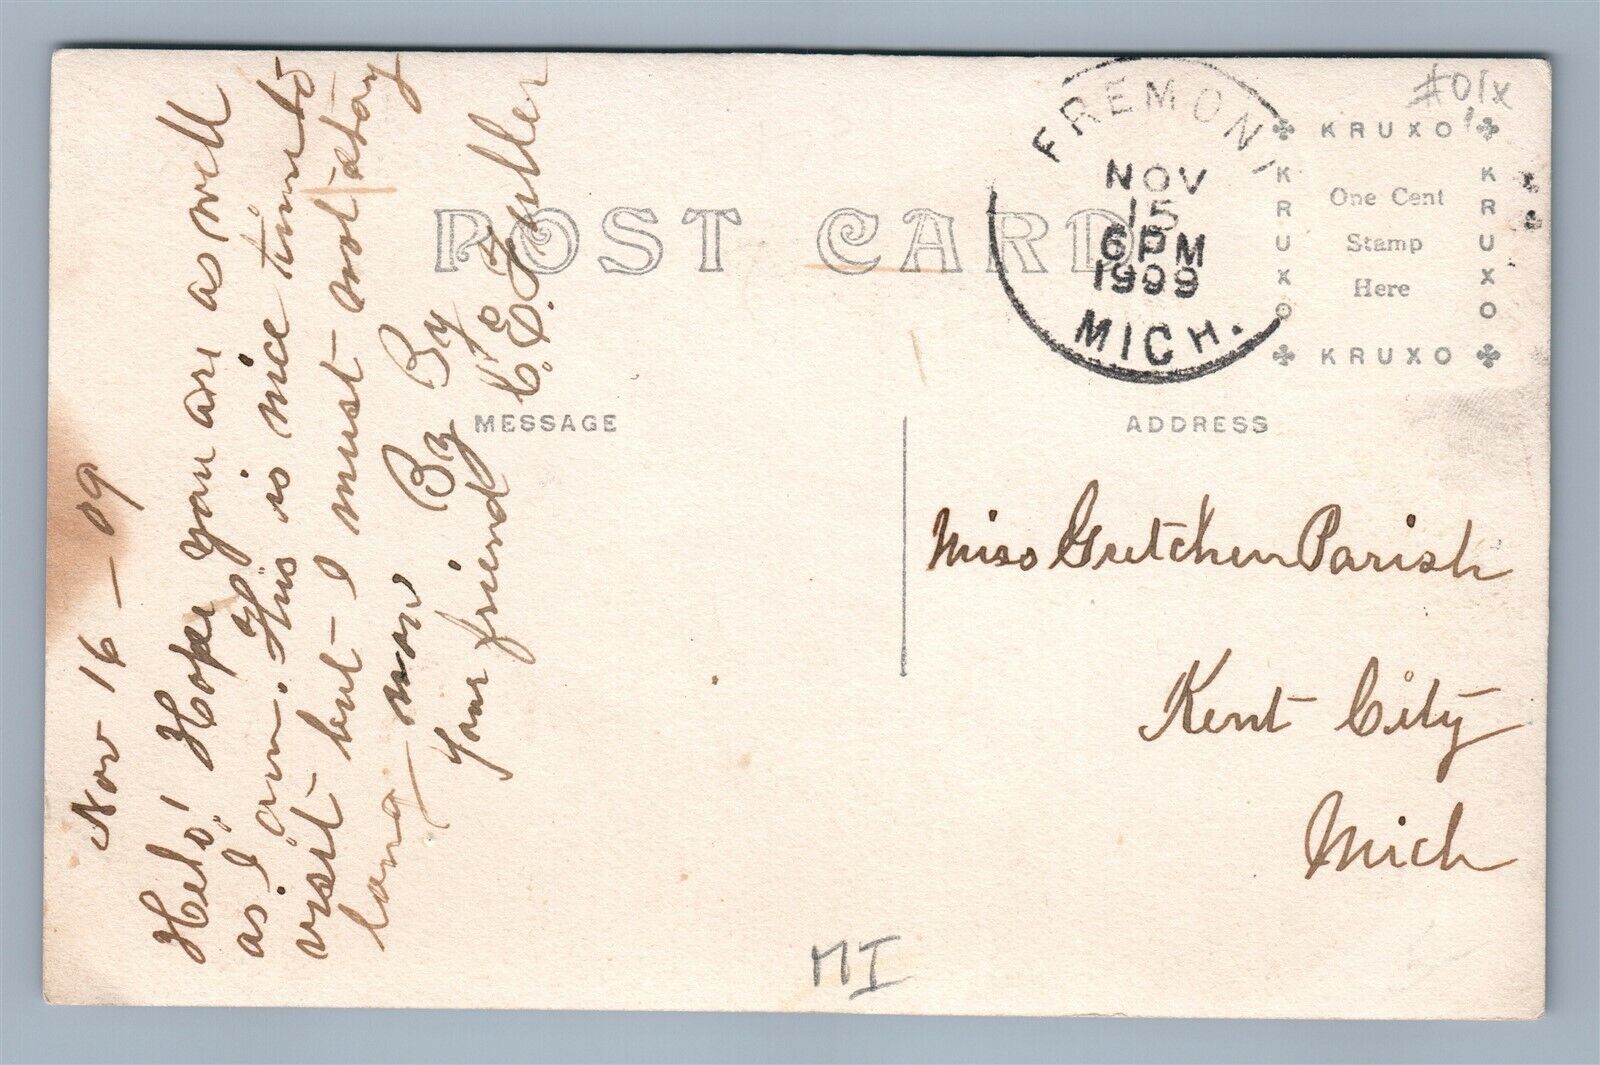 Nov 16 - 09
Helo! Hope you are as well
as I am. This is nice time to
visit but I must not stay
long now By By
Your friend C. E. Fuller
POST CARD
MESSAGE
ADDRESS
FREMONT
NOV
15
6 PM
1909
MICH.
#01x
KRUXO
KRUXO
One Cent
Stamp
Here
KRUXO
KRUXO
Miss Gretchen Parish
Kent City
Mich
MI